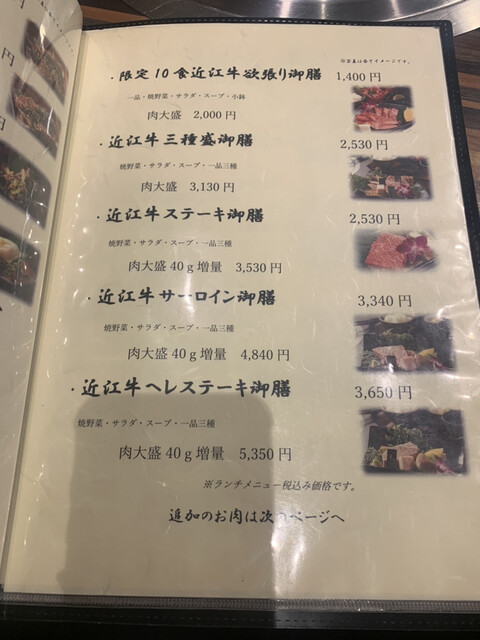 ※写真は全てイメージです。
・限定10食近江牛欲張り御膳 1,400円
一品・焼野菜・サラダ・スープ・小鉢
肉大盛 2,000円
・近江牛三種盛御膳 2,530円
焼野菜・サラダ・スープ・一品三種
肉大盛 3,130円
・近江牛ステーキ御膳 2,530円
焼野菜・サラダ・スープ・一品三種
肉大盛40g増量 3,530円
・近江牛サーロイン御膳 3,340円
焼野菜・サラダ・スープ・一品三種
肉大盛40g増量 4,840円
・近江牛ヘレステーキ御膳 3,650円
焼野菜・サラダ・スープ・一品三種
肉大盛40g増量 5,350円
※ランチメニュー税込み価格です。
追加のお肉は次のページへ